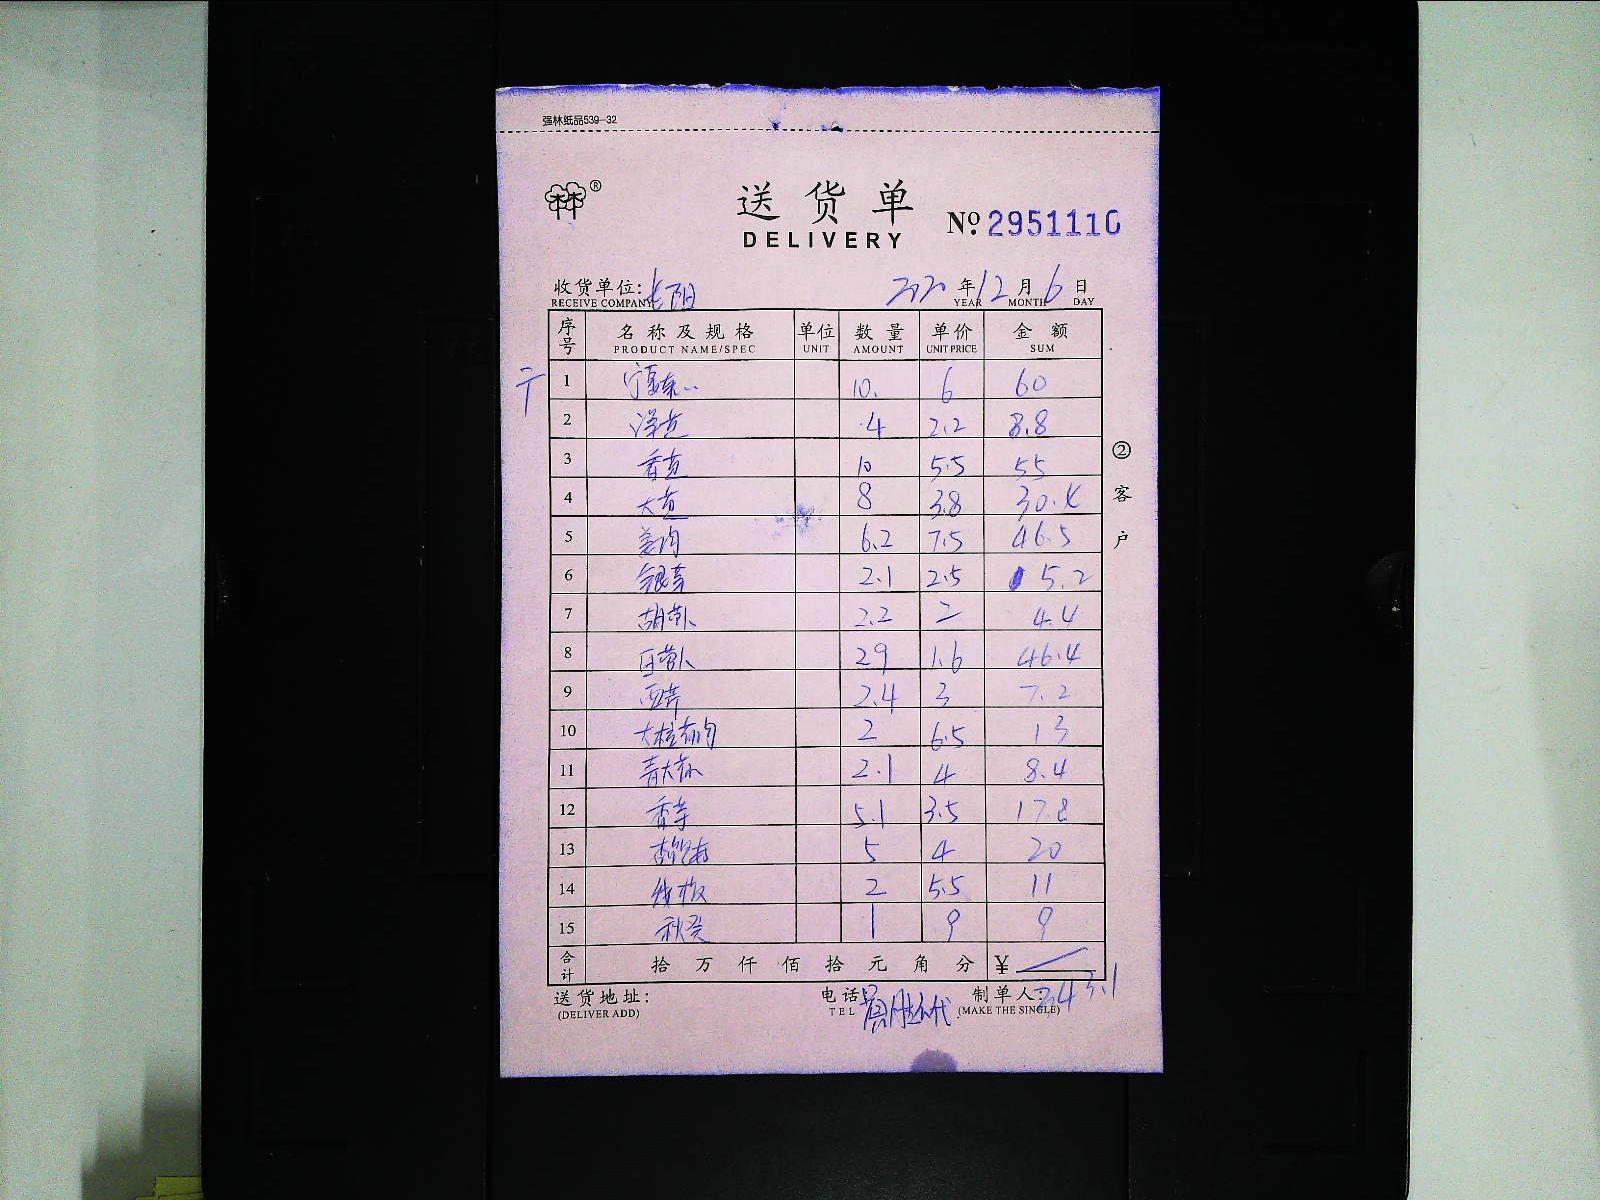 强林纸品539-32
®
送货单
DELIVERY
№ 2951110
收货单位: 长阳 2020 年 12 月 6 日
RECEIVE COMPANY YEAR MONTH DAY
序号 名称及规格 单位 数量 单价 金额
PRODUCT NAME/SPEC UNIT AMOUNT UNIT PRICE SUM
1 宁夏 10. 6 60
2 洋 4 2.2 8.8
3 香 10 5.5 55
4 大 8 3.8 30.4
5 姜肉 6.2 7.5 46.5
6 银芽 2.1 2.5 5.2
7 胡萝卜 2.2 2 4.4
8 白萝卜 29 1.6 46.4
9 西芹 2.4 3 7.2
10 大 2 6.5 13
11 青大 2.1 4 8.4
12 香芋 5.1 3.5 17.8
13 杏鲍菇 5 4 20
14 线椒 2 5.5 11
15 秋葵 1 9 9
合计 拾 万 仟 佰 拾 元 角 分 ¥
送货地址: 电话: 制单人: 343.1
(DELIVER ADD) TEL (MAKE THE SINGLE)
②客户